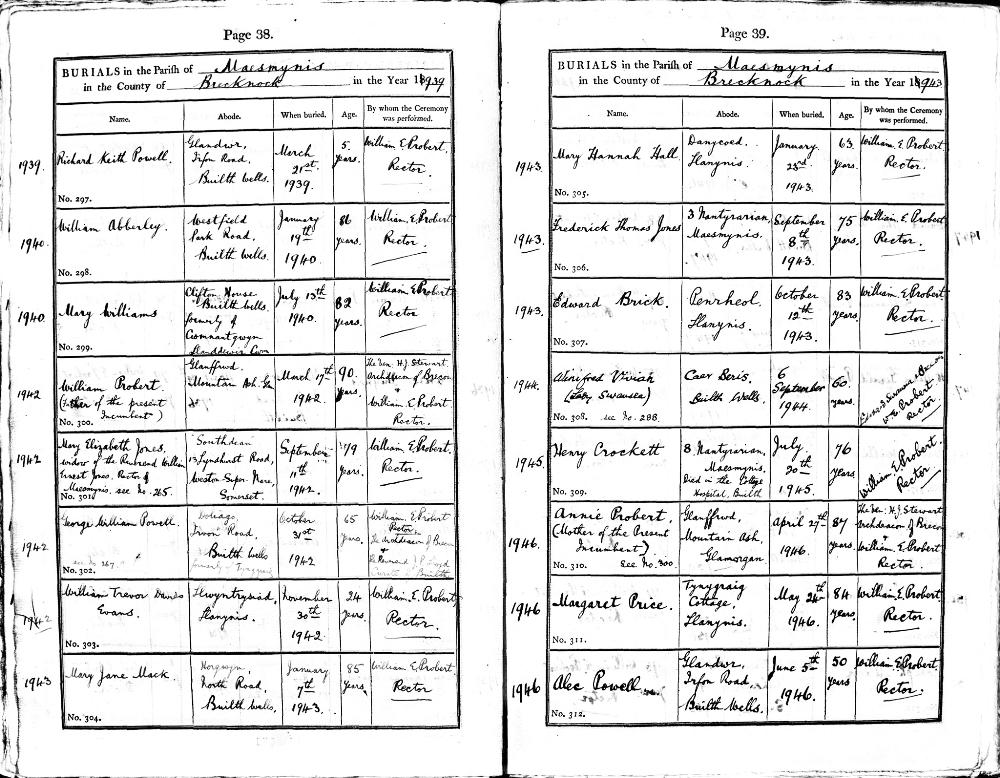 Page 38.
BURIALS in the Parish of Maesmynis
in the County of Brecknock in the Year 1939
Name. Abode. When buried. Age. By whom the Ceremony was performed.
1939.
Richard Keith Powell.
No. 297.
Glandwr,
Irfon Road,
Builth Wells.
March
21st
1939.
5
years.
William E. Probert
Rector.
1940.
William Abberley.
No. 298.
Westfield
Park Road,
Builth Wells.
January
19th
1940.
86
years.
William. E. Probert
Rector.
1940
Mary Williams
No. 299.
Clifton House
Builth Wells.
formerly of
Llanddewi'r Cwm
July 13th
1940.
82
years.
William. E. Probert
Rector
1942
William Probert.
(Father of the present
Incumbent)
No. 300.
Glanffrwd.
Mountain Ash. Glam
March 17th
1942.
90.
years.
The Ven: H.J. Stewart
Archdeacon of Brecon
+
William E. Probert.
Rector.
1942
Mary Elizabeth Jones.
widow of the Reverend William
Ernest Jones. Rector of
Maesmynis. see No. 265.
No. 301.
Southdean
13 Lyndhurst Road,
Weston Super. Mare,
Somerset.
September
11th
1942.
79
years.
William E. Probert.
Rector.
1942
George William Powell.
see no. 267
No. 302.
Irvon Road,
Builth Wells
formerly of
October
31st
1942
65
years.
William E. Probert
Rector
The Archdeacon of Brecon
+
Builth
1942
William Trevor Davies
Evans.
No. 303.
Llwyntrynad,
Llanynis.
November
30th
1942.
24
years.
William. E. Probert
Rector.
1943
Mary Jane Mack.
No. 304.
North Road,
Builth Wells.
January
7th
1943.
85
years.
William E. Probert
Rector
Page 39.
BURIALS in the Parish of Maesmynis
in the County of Brecknock in the Year 1943
Name. Abode. When buried. Age. By whom the Ceremony was performed.
1943.
Mary Hannah Hall.
No. 305.
Danycoed.
Llanynis.
January.
23rd
1943.
63
years.
William. E. Probert
Rector.
1943.
Frederick Thomas Jones
No. 306.
3 Nantyrarian,
Maesmynis.
September
8th
1943.
75
years.
William. E. Probert
Rector.
1943.
Edward Brick.
No. 307.
Penrheol.
Llanynis.
October
12th
1943.
83
years.
William. E. Probert
Rector.
1944.
Winifred Vivian
(Lady Swansea)
No. 308. see No. 288.
Caer Beris.
Builth Wells.
6
September
1944.
60.
years.
W. E. Probert
Rector
1945.
Henry Crockett
No. 309.
8. Nantyrarian,
Maesmynis.
Died in the Cottage
Hospital, Builth
July
20th
1945.
76
years
William E. Probert.
Rector
1946.
Annie Probert.
(Mother of the Present
Incumbent)
No. 310. See No. 300.
Glanffrwd,
Mountain Ash.
Glamorgan
April 27th
1946.
87
years.
The Ven: H.J. Stewart
Archdeacon of Brecon
+
William E. Probert
Rector.
1946
Margaret Price.
No. 311.
Tynygraig
Cottage,
Llanynis.
May 24th
1946.
84
years.
William. E. Probert.
Rector.
1946
Alec Powell.
No. 312.
Glandwr,
Irfon Road,
Builth Wells.
June 5th
1946.
50
years
William. E. Probert,
Rector.